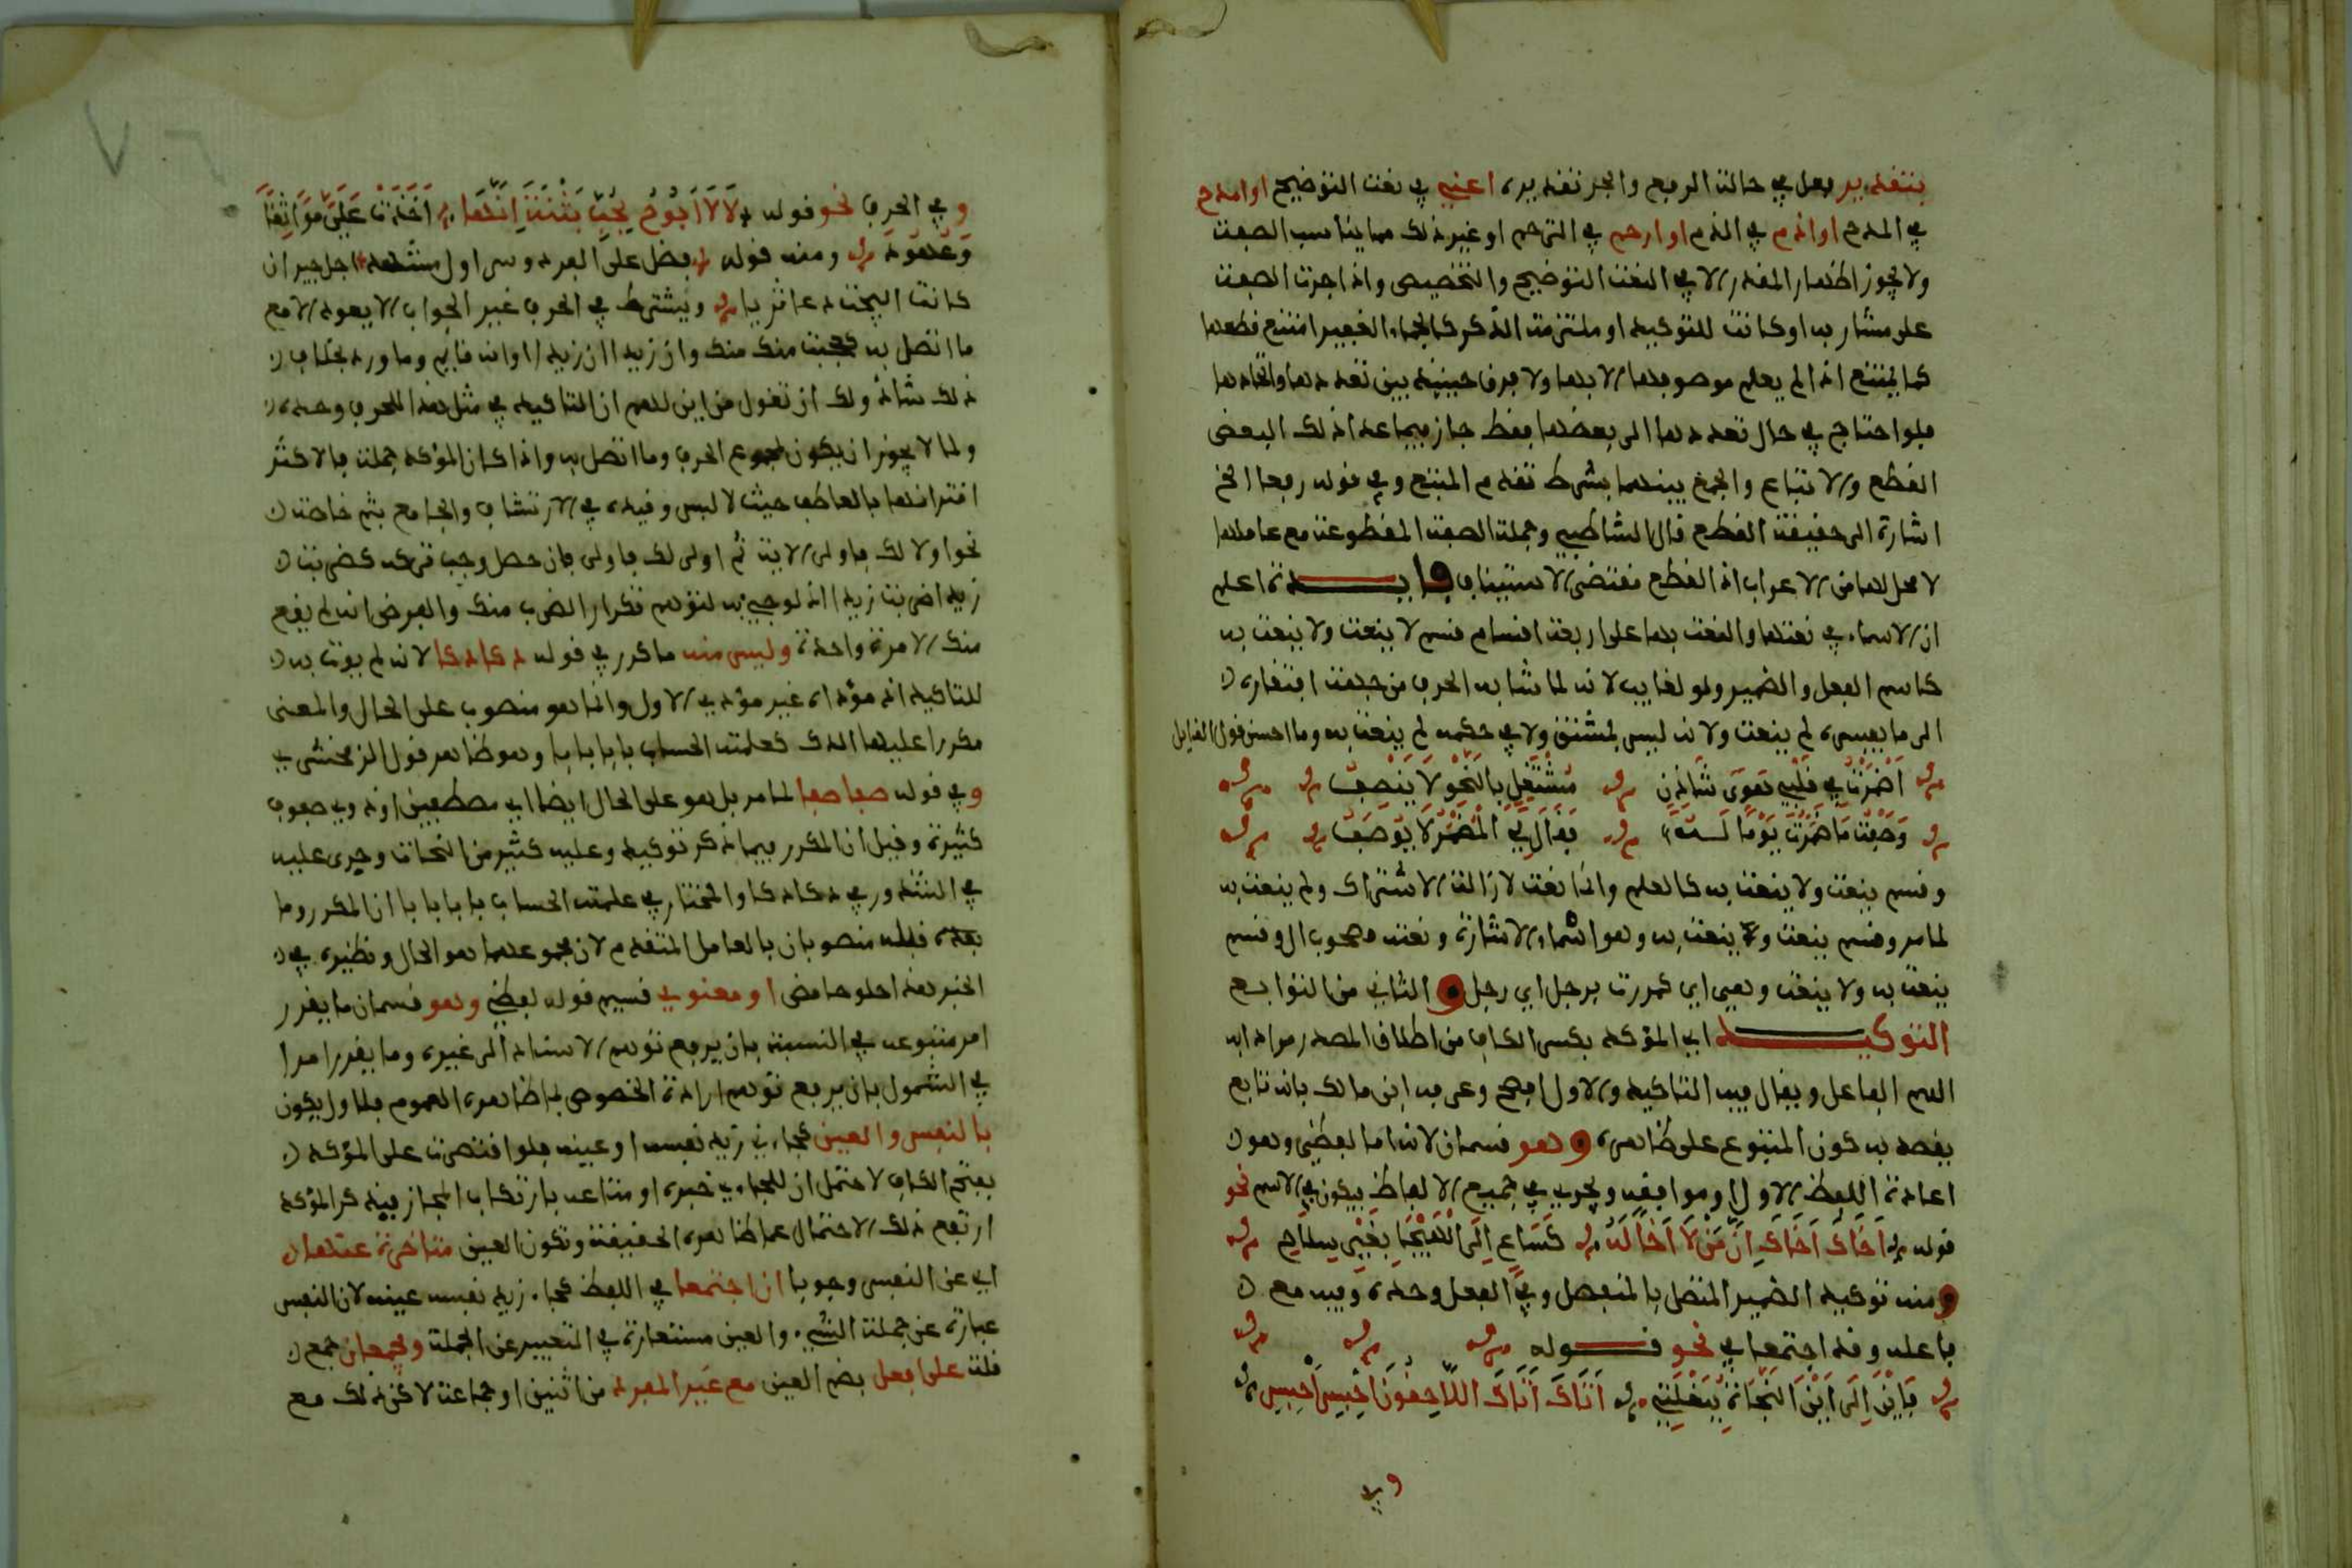 بتقدير فعل في حالة الرفع والجر تقديره اعني في نعت التوضيح او امدح
في المدح او اذم في الذم او ارحم في الترحم او غير ذلك مما يناسب الصفة
ولا يجوز اظهار المقدر الا في النعت التوضيح والتخصيص واذا جرت الصفة
على مشار به او كانت للتوكيد او ملتزمة الذكر كالجماء الغفير امتنع قطعها
كما يمتنع اذا لم يعلم موصوفها الا بها ولا فرق حينئذ بين تعددها واتحادها
فلو احتاج في حال تعددها الى بعضها فقط جاز فيما عدا ذلك البعض
القطع والاتباع والجمع بينهما بشرط تقدم المتبع وفي قوله رفعا الخ
اشارة الى حقيقة القطع قال الشاطبي وجملة الصفة المقطوعة مع عاملها
لا محل لها من الاعراب اذ القطع مقتضى الاستيناف فايدة اعلم
ان الاسماء في نعتها والنعت بها على اربعة اقسام قسم لا ينعت ولا ينعت به
كاسم الفعل والضمير ولو لغايب لانه لما شابه الحرف من جهة افتقاره
الى ما يفسره لم ينعت ولانه ليس بمشتق ولا في حكمه لم ينعت به وما احسن قول القايل
اضمرت في قلبي هوى شادن مشتغل بالنحو لا ينصف
وصفت ما اضمرت يوما له فقال لي المضمر لا يوصف
وقسم ينعت ولا ينعت به كالعلم وانما نعت لازالة الاشتراك ولم ينعت به
لما مر وقسم ينعت وينعت به وهو اسماء الاشارة ونعته مصحوب ال وقسم
ينعت به ولا ينعت وهي اي كمررت برجل اي رجل و الثاني من التوابع
التوكيد اي المؤكد بكسر الكاف من اطلاق المصدر مرادا به
اسم الفاعل ويقال فيه التاكيد والاول افصح وعرفه ابن مالك بانه تابع
يقصد به كون المتبوع على ظاهره وهو قسمان لانه اما لفظي وهو
اعادة اللفظ الاول او موافقه ويجري في جميع الالفاظ فيكون في الاسم نحو
قوله اخاك اخاك ان من لا اخا له كساع الى الهيجا بغير سلاح
ومنه توكيد الضمير المتصل بالمنفصل وفي الفعل وحده وفيه مع
فاعله وقد اجتمعا في نحو قوله
فاين الى اين النجاة ببغلتي اتاك اتاك اللاحقون احبس احبس
وفي
وفي الحرف نحو قوله لا لا ابوح بحب بثنة انها اخذت علي مواثقا
وعهودا ومنه قوله اجل جير ان
كانت ويشترط في الحرف غير الجواب الا يعود الا مع
ما اتصل به كعجبت منك منك وان زيدا ان زيدا او انه قايم وما ورد بخلاف
ذلك شاذ ولك ان تقول من اين لهم ان التاكيد في مثل هذا للحرف وحده
ولم لا يجوز ان يكون لمجموع الحرف وما اتصل به واذا كان المؤكد جملة فالاكثر
اقترانها بالعاطف حيث لا لبس وقيده في الارتشاف والجامع بثم خاصة
نحو اولى لك فاولى الاية ثم اولى لك فاولى فان حصل وجب تركه كضربت
زيدا ضربت زيدا اذ لو جيء به لتوهم تكرار الضرب منك والفرض انه لم يقع
منك الا مرة واحدة وليس منه ما كرر في قوله دكا دكا لانه لم يوت به
للتاكيد اذ مؤداه غير مؤدى الاول وانما هو منصوب على الحال والمعنى
مكررا عليها الدك كعلمته الحساب بابا بابا وهو ظاهر قول الزمخشري
وفي قوله صفا صفا لما مر بل هو على الحال ايضا اي مصطفين او ذوي صفوف
كثيرة وقيل ان المكرر فيما ذكر توكيد وعليه كثير من النحاة وجرى عليه
في الشذور في دكا دكا والمختار في علمته الحساب بابا بابا ان المكرر وما
منصوبان بالعامل المتقدم لان مجموعهما هو الحال ونظيره في
الخبر هذا حلو حامض او معنوي قسيم قوله لفظي وهو قسمان ما يقرر
امر متبوعه في النسبة بان يرفع توهم الاسناد الى غيره وما يقرر امرا
في الشمول بان يرفع توهم ارادة الخصوص بما ظاهره العموم فالاول يكون
بالنفس والعين كجاءني زيد نفسه او عينه فلو اقتصرت على المؤكد
بفتح الكاف لاحتمل ان الجاءي خبره او متاعه بارتكاب المجاز فبذكر المؤكد
ارتفع ذلك الاحتمال عما ظاهره الحقيقة وتكون العين متاخرة عنها
اي عن النفس وجوبا ان اجتمعا في اللفظ كجاء زيد نفسه عينه لان النفس
عبارة عن جملة الشيء والعين مستعارة في التعبير عن الجملة ويجمعان جمع
قلة على افعل بضم العين مع غير المفرد من اثنين او جماعة لاكن ذلك مع